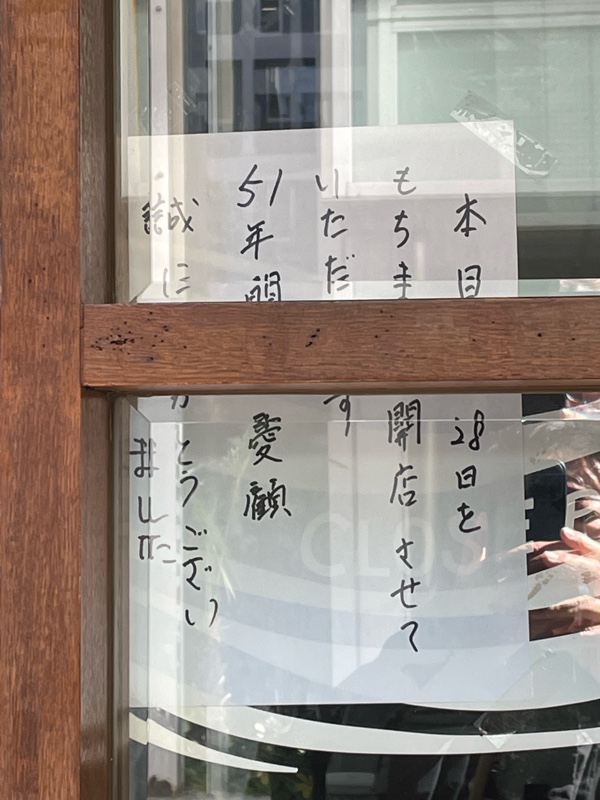 本日 28日を
もちま 開店させて
いただ す
51年間 愛顧
誠に がとうござい
ました
CLOSE